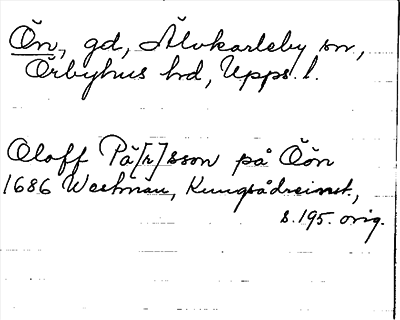 Ön, gd, Älvkarleby sn,
Örbyhus hd, Upps. l.
Oloff Pä[r]sson på Öön
1686 Westman, Kungsådreinst.,
s. 195. orig.